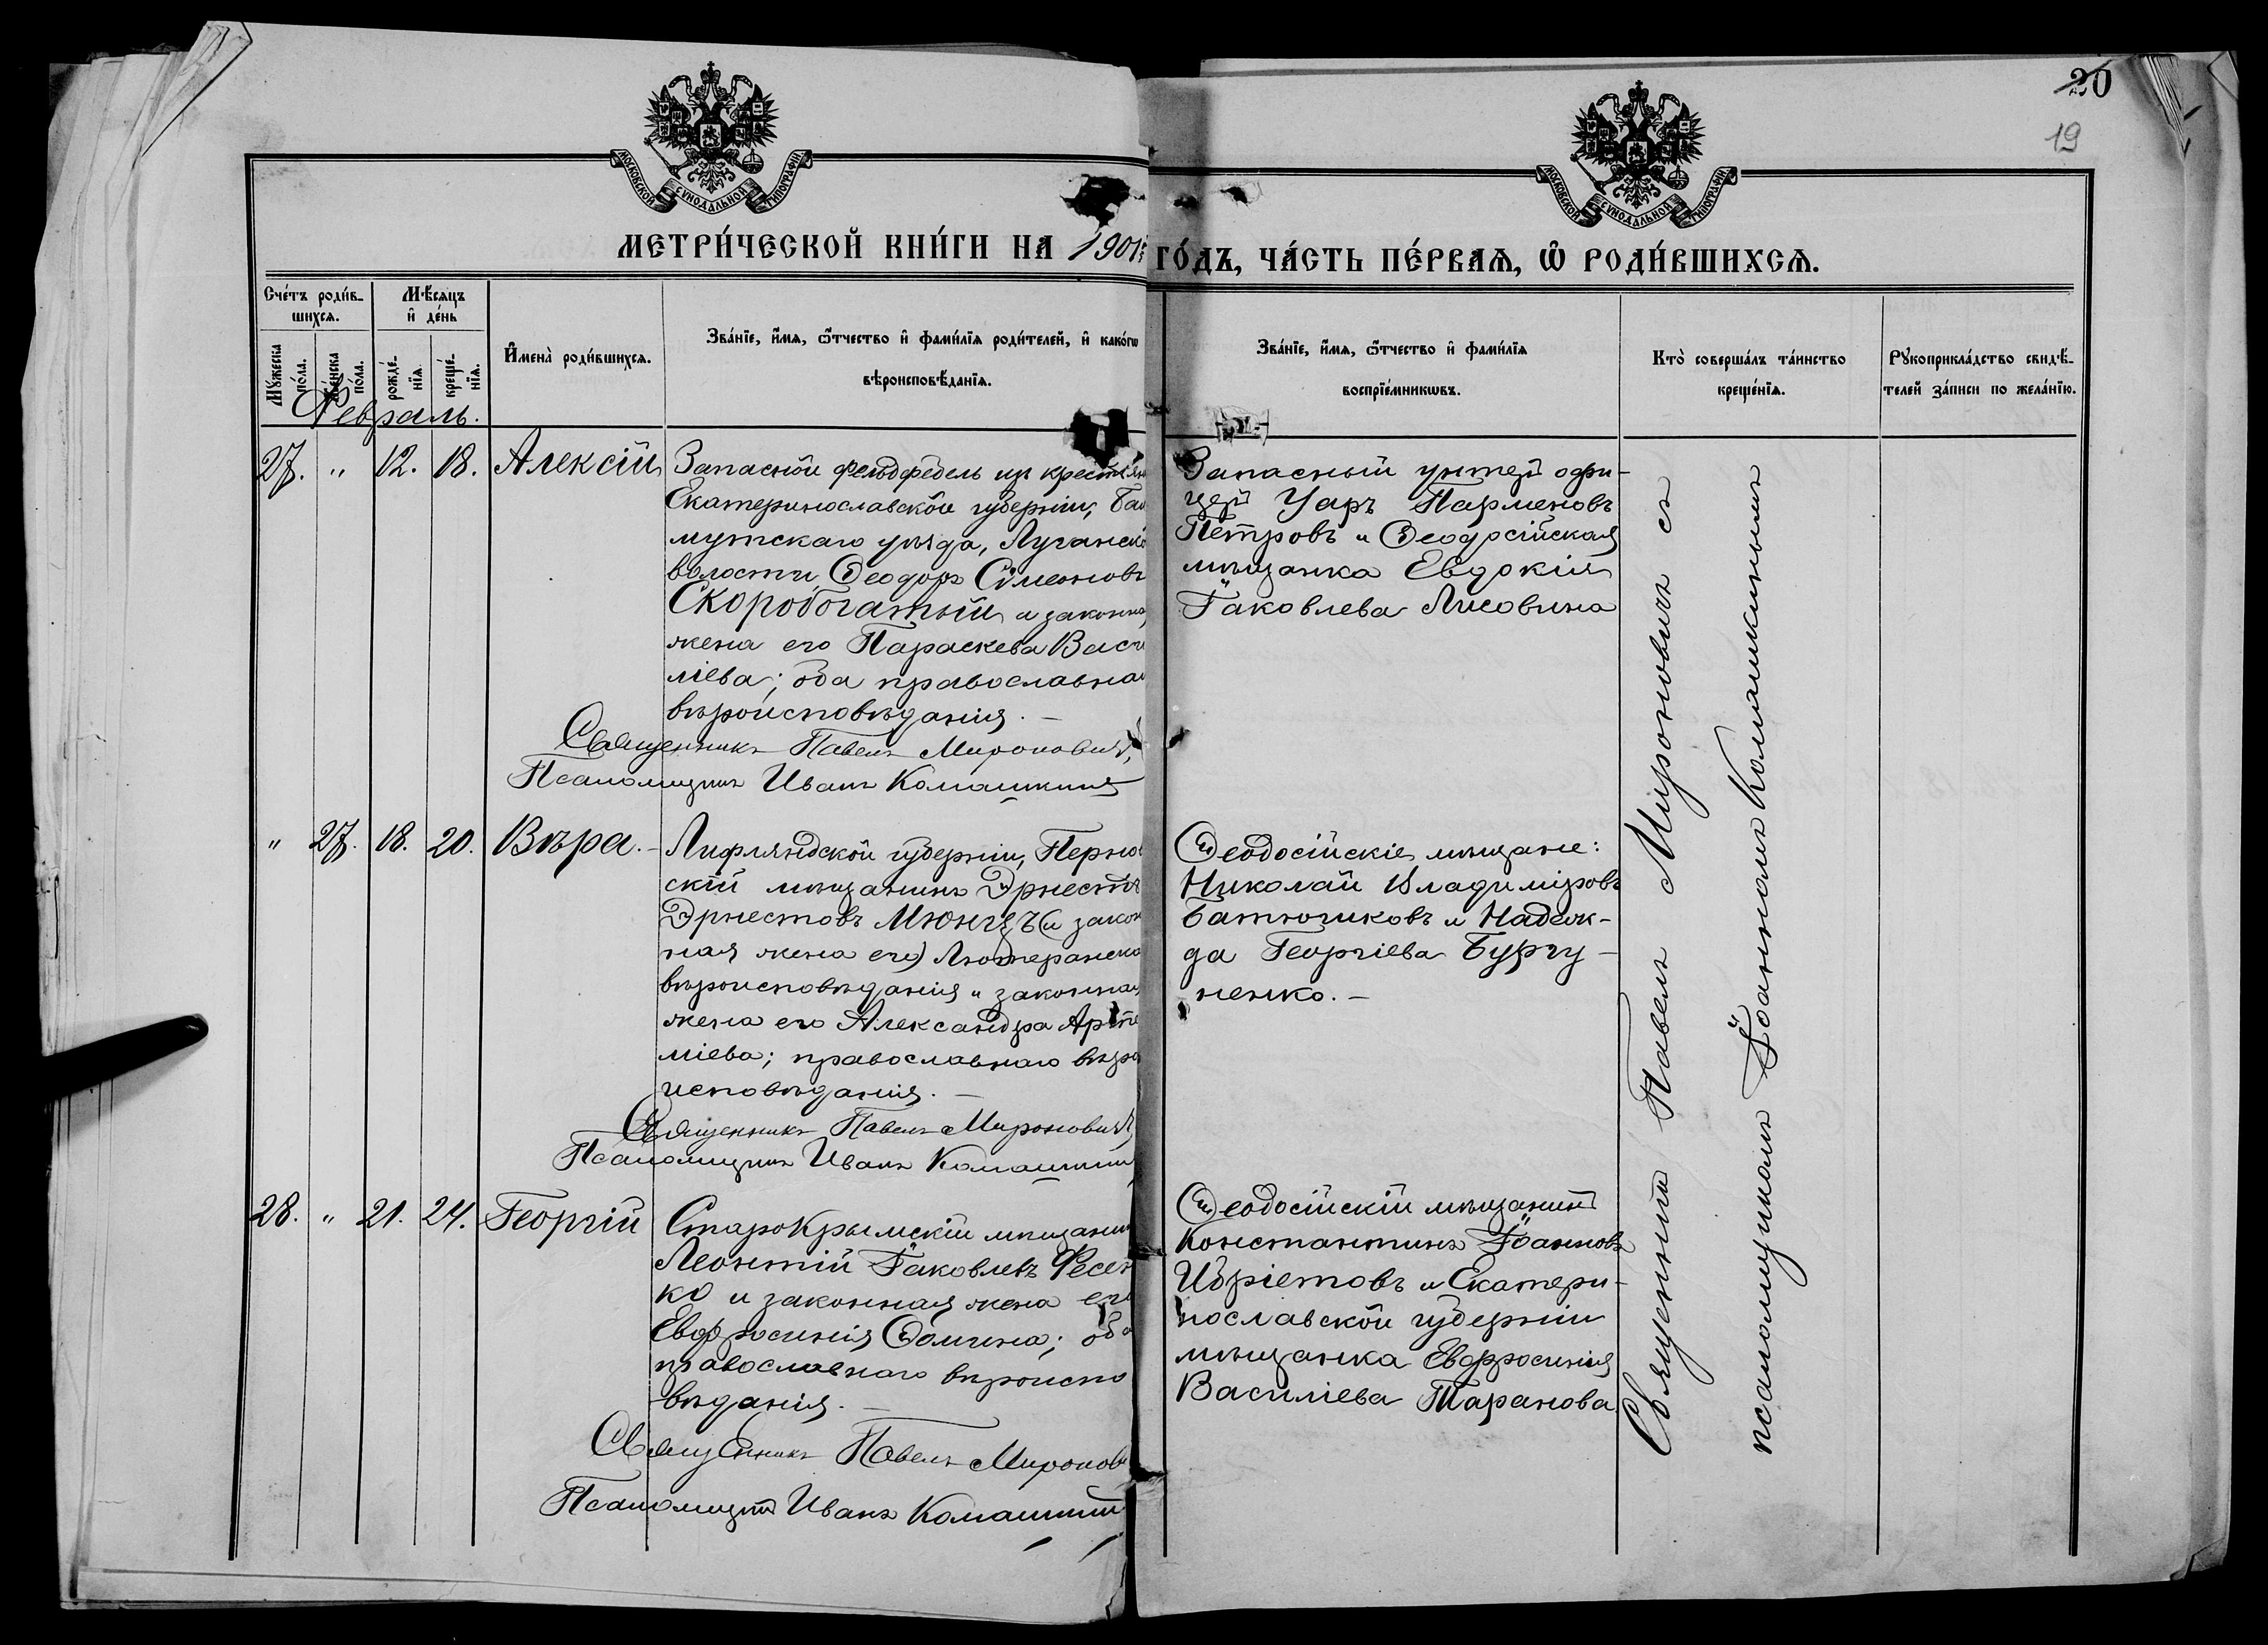 20
19
МОСКОВСКОЙ СѴНОДАЛЬНОЙ ТИПОГРАФІИ
МОСКОВСКОЙ СѴНОДАЛЬНОЙ ТИПОГРАФІИ
МЕТРИ́ЧЕСКОЙ КНИ́ГИ НА 1901й ГО́ДЪ, ЧА́СТЬ ПЕ́РВАѦ, Ѡ҆ РОДИ́ВШИХСѦ.
Сче́тъ роди́в-
шихсѧ.
Мꙋ́жеска
по́ла.
Же́нска
по́ла.
Мѣ́сѧцъ
и҆ де́нь
рожде́-
нїѧ.
креще́-
нїѧ.
И҆мена̀ роди́вшихсѧ.
Зва́нїе, и҆́мѧ, ѻ҆́тчество и҆ фами́лїѧ роди́телей, и҆ како́гѡ
вѣроисповѣ́данїѧ.
Зва́нїе, и҆́мѧ, ѻ҆́тчество и҆ фами́лїѧ
воспрїе́мникѡвъ.
Кто̀ соверша́лъ та́инство
креще́нїѧ.
Рꙋкоприкла́дство свидѣ́-
телей за́писи по жела́нїю.
Февраль.
27. " 12. 18. Алексій
Запасной фельдфебель из крестьян
Екатеринославской губерніи, Бах
мутскаго уѣзда, Луганской
волости Ѳеодоръ Сѵмеоновъ
Скоробогатый и законна
жена его Параскева Васи
ліева; оба православнаг
вѣроисповѣданія. –
Священникъ Павелъ Мироновичъ
Псаломщикъ Иванъ Комашкинъ
Запасный унтеръ офи-
церъ Уаръ Парменовъ
Петровъ и Ѳеодосійская
мѣщанка Евдокія
Іаковлева Лисовина
" 27. 18. 20. Вѣра. –
Лифляндской губерніи, Перно
скій мѣщанинъ Эрнестъ
Эрнестовъ Мюнцъ (и закон
ная жена его) Лютеранска
вѣроисповѣданія и законная
жена его Александра Арте
міева; православнаго вѣро
исповѣданія. –
Священникъ Павелъ Мироновичъ
Псаломщикъ Иванъ Комашкин
Ѳеодосійскіе мѣщане:
Николай Владиміровъ
Батюшковъ и Надеж-
да Георгіева Бургу-
ненко. –
28. " 21. 24. Георгій
СтароКрымскій мѣщанин
Леонтій Іаковлевъ Фесен
ко и законная жена его
Евфросинія Ѳомина; оба
православнаго вѣроиспо
вѣданія. –
Священникъ Павелъ Миронов
Псаломщикъ Иванъ Комашкин
Ѳеодосійскій мѣщанинъ
Константинъ Іоанновъ
и Екатери-
нославской губерніи
мѣщанка Евфросинія
Василіева Таранова.
Священникъ Павелъ Мироновичъ съ
псаломщикомъ Іоанномъ Комашкинымъ